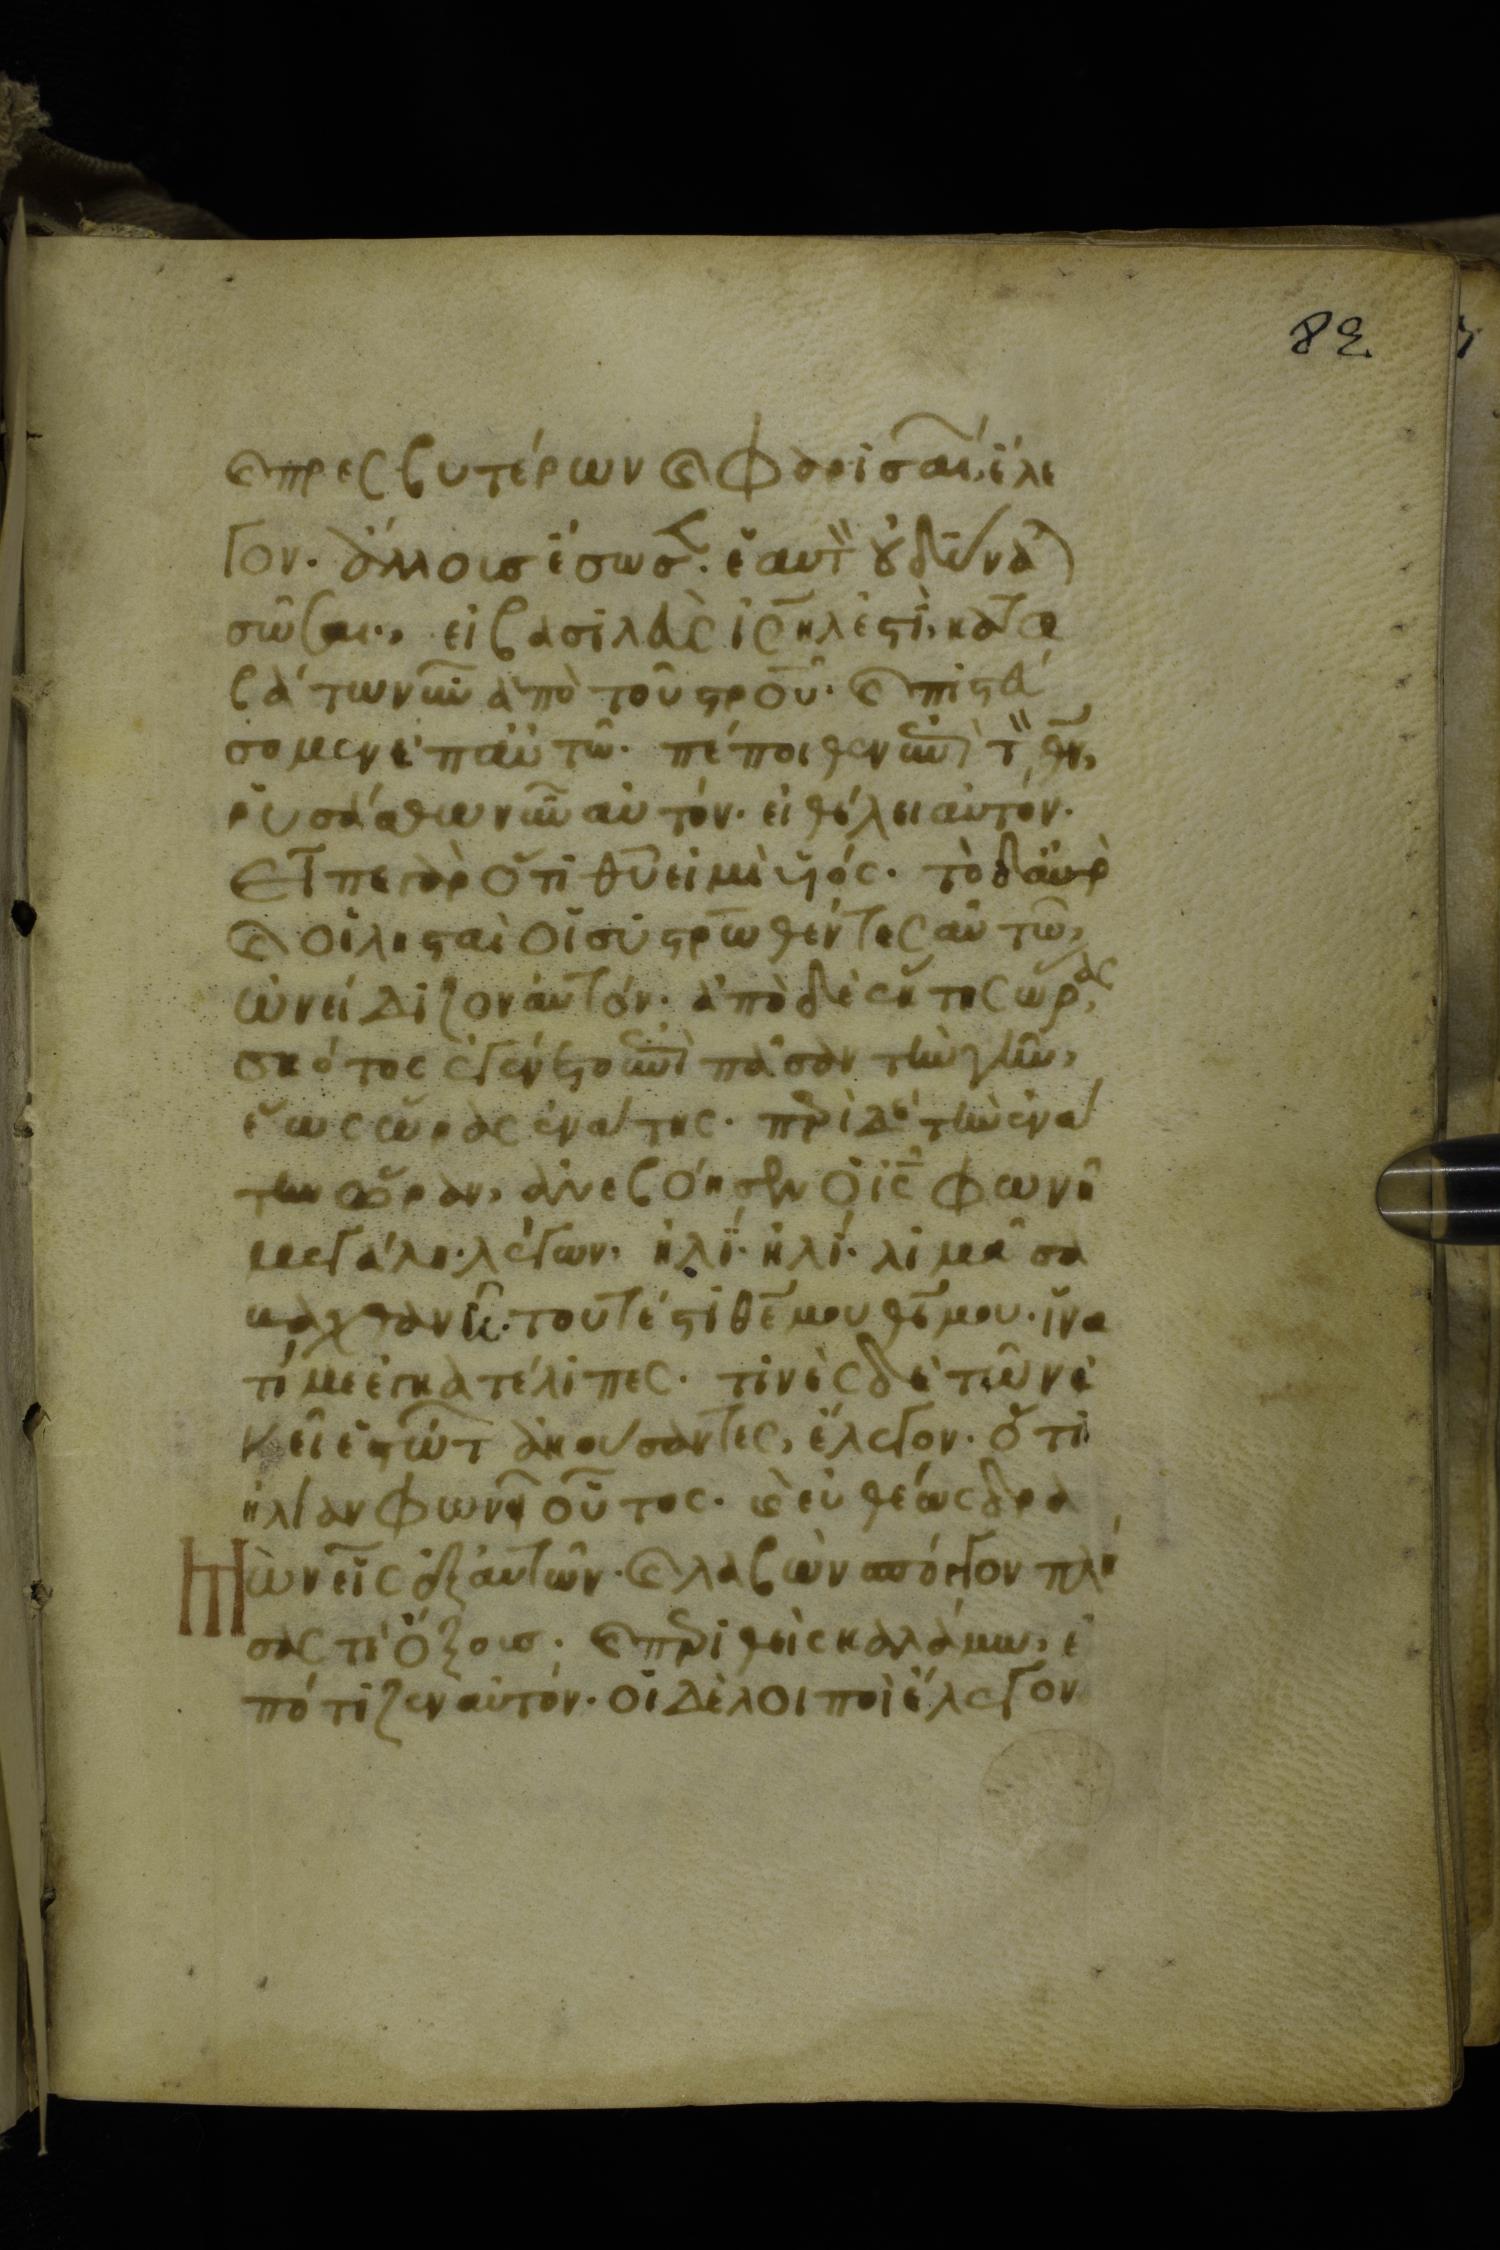 82
ϗ πρεσβυτέρων ϗ φαρισαί, ἔλε
γον. ἄλλουσ ἔσωσ. ἑαυτ οὐ δύνα
σῶσαι, εἰ βασιλεὺς ἰσηλ ἐστὶ, κατα
βάτω νῦν ἀπὸ τοῦ στροῦ. ϗ πιστεύ
σομεν ἐπαὐτῶ. πέποιθεν ἐπὶ τ θν,
ῥυσάσθω νῦν αὐτόν. εἰ θέλει αὐτόν.
Εἶπε γὰρ ὅτι θυ εἰμὶ υἱός. τὸ δαὐτὸ
ϗ οἱ λησταὶ οἱ συστρωθέντες αὐτῶ,
ὠνείδιζον αὐτόν. ἀπὸ δὲ ἕκτης ὥρας,
σκότος ἐγένετο ἐπὶ πᾶσαν τὴν γῆν,
ἕως ὥρας ἐνάτης. περὶ δὲ τὴν ἐνά
την ὥραν, ἀνεβόησεν ὁ ις φωνῆ
μεγάλη. λέγων. ἠλί. ἠλί. λιμᾶ σα
βαχθανί. τοῦτέστι θέ μου θέ μου. ἵνα
τί με ἐγκατέλιπες. τινὲς δὲ τῶν ἐ
κεῖ ἑστώτ ἀκούσαντες, ἔλεγον. ὅτι
ἠλίαν φωνεῖ οὗτος. ϗ εὐθέως δρα
μὼν εἷς ἐξ αὐτῶν. ϗ λαβὼν σπόγγον πλή
σας τὲ ὄξουσ. ϗ περιθεὶς καλάμω, ἐ
πότιζεν αὐτόν. οἱ δὲ λοιποὶ ἔλεγον